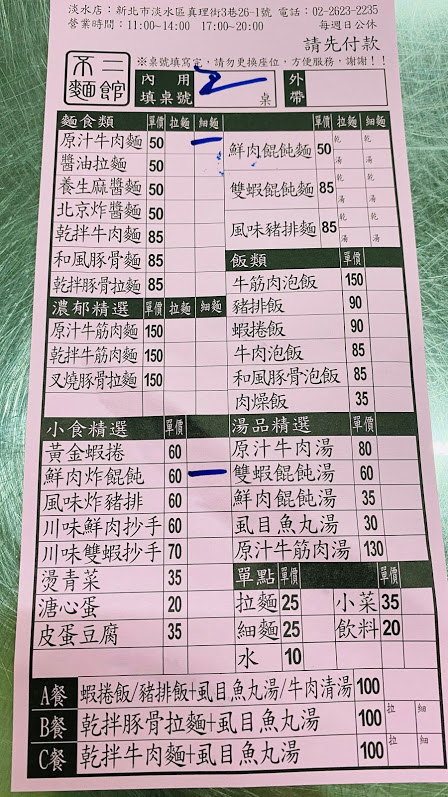 淡水店：新北市淡水區真理街3巷26-1號 電話：02-2623-2235
營業時間：11:00~14:00 17:00~20:00 每週日公休
請先付款
※桌號填寫完，請勿更換座位，方便服務，謝謝！！
不二麵館
內用填桌號 2 桌 外帶
麵食類 單價 拉麵 細麵
原汁牛肉麵 50 一
醬油拉麵 50
養生麻醬麵 50
北京炸醬麵 50
乾拌牛肉麵 85
和風豚骨麵 85
乾拌豚骨拉麵 85
濃郁精選 單價 拉麵 細麵
原汁牛筋肉麵 150
乾拌牛筋肉麵 150
叉燒豚骨拉麵 150
單價 拉麵 細麵
鮮肉餛飩麵 50 乾 湯 乾 湯
雙蝦餛飩麵 85 乾 湯 乾 湯
風味豬排麵 85 乾 湯 乾 湯
飯類 單價
牛筋肉泡飯 150
豬排飯 90
蝦捲飯 90
牛肉泡飯 85
和風豚骨泡飯 85
肉燥飯 35
小食精選 單價
黃金蝦捲 60
鮮肉炸餛飩 60 一
風味炸豬排 60
川味鮮肉抄手 60
川味雙蝦抄手 70
燙青菜 35
溏心蛋 20
皮蛋豆腐 35
湯品精選 單價
原汁牛肉湯 80
雙蝦餛飩湯 60
鮮肉餛飩湯 35
虱目魚丸湯 30
原汁牛筋肉湯 130
單點 單價 單價
拉麵 25 小菜 35
細麵 25 飲料 20
水 10
A餐 蝦捲飯/豬排飯+虱目魚丸湯/牛肉清湯 100
B餐 乾拌豚骨拉麵+虱目魚丸湯 100 拉 細
C餐 乾拌牛肉麵+虱目魚丸湯 100 拉 細